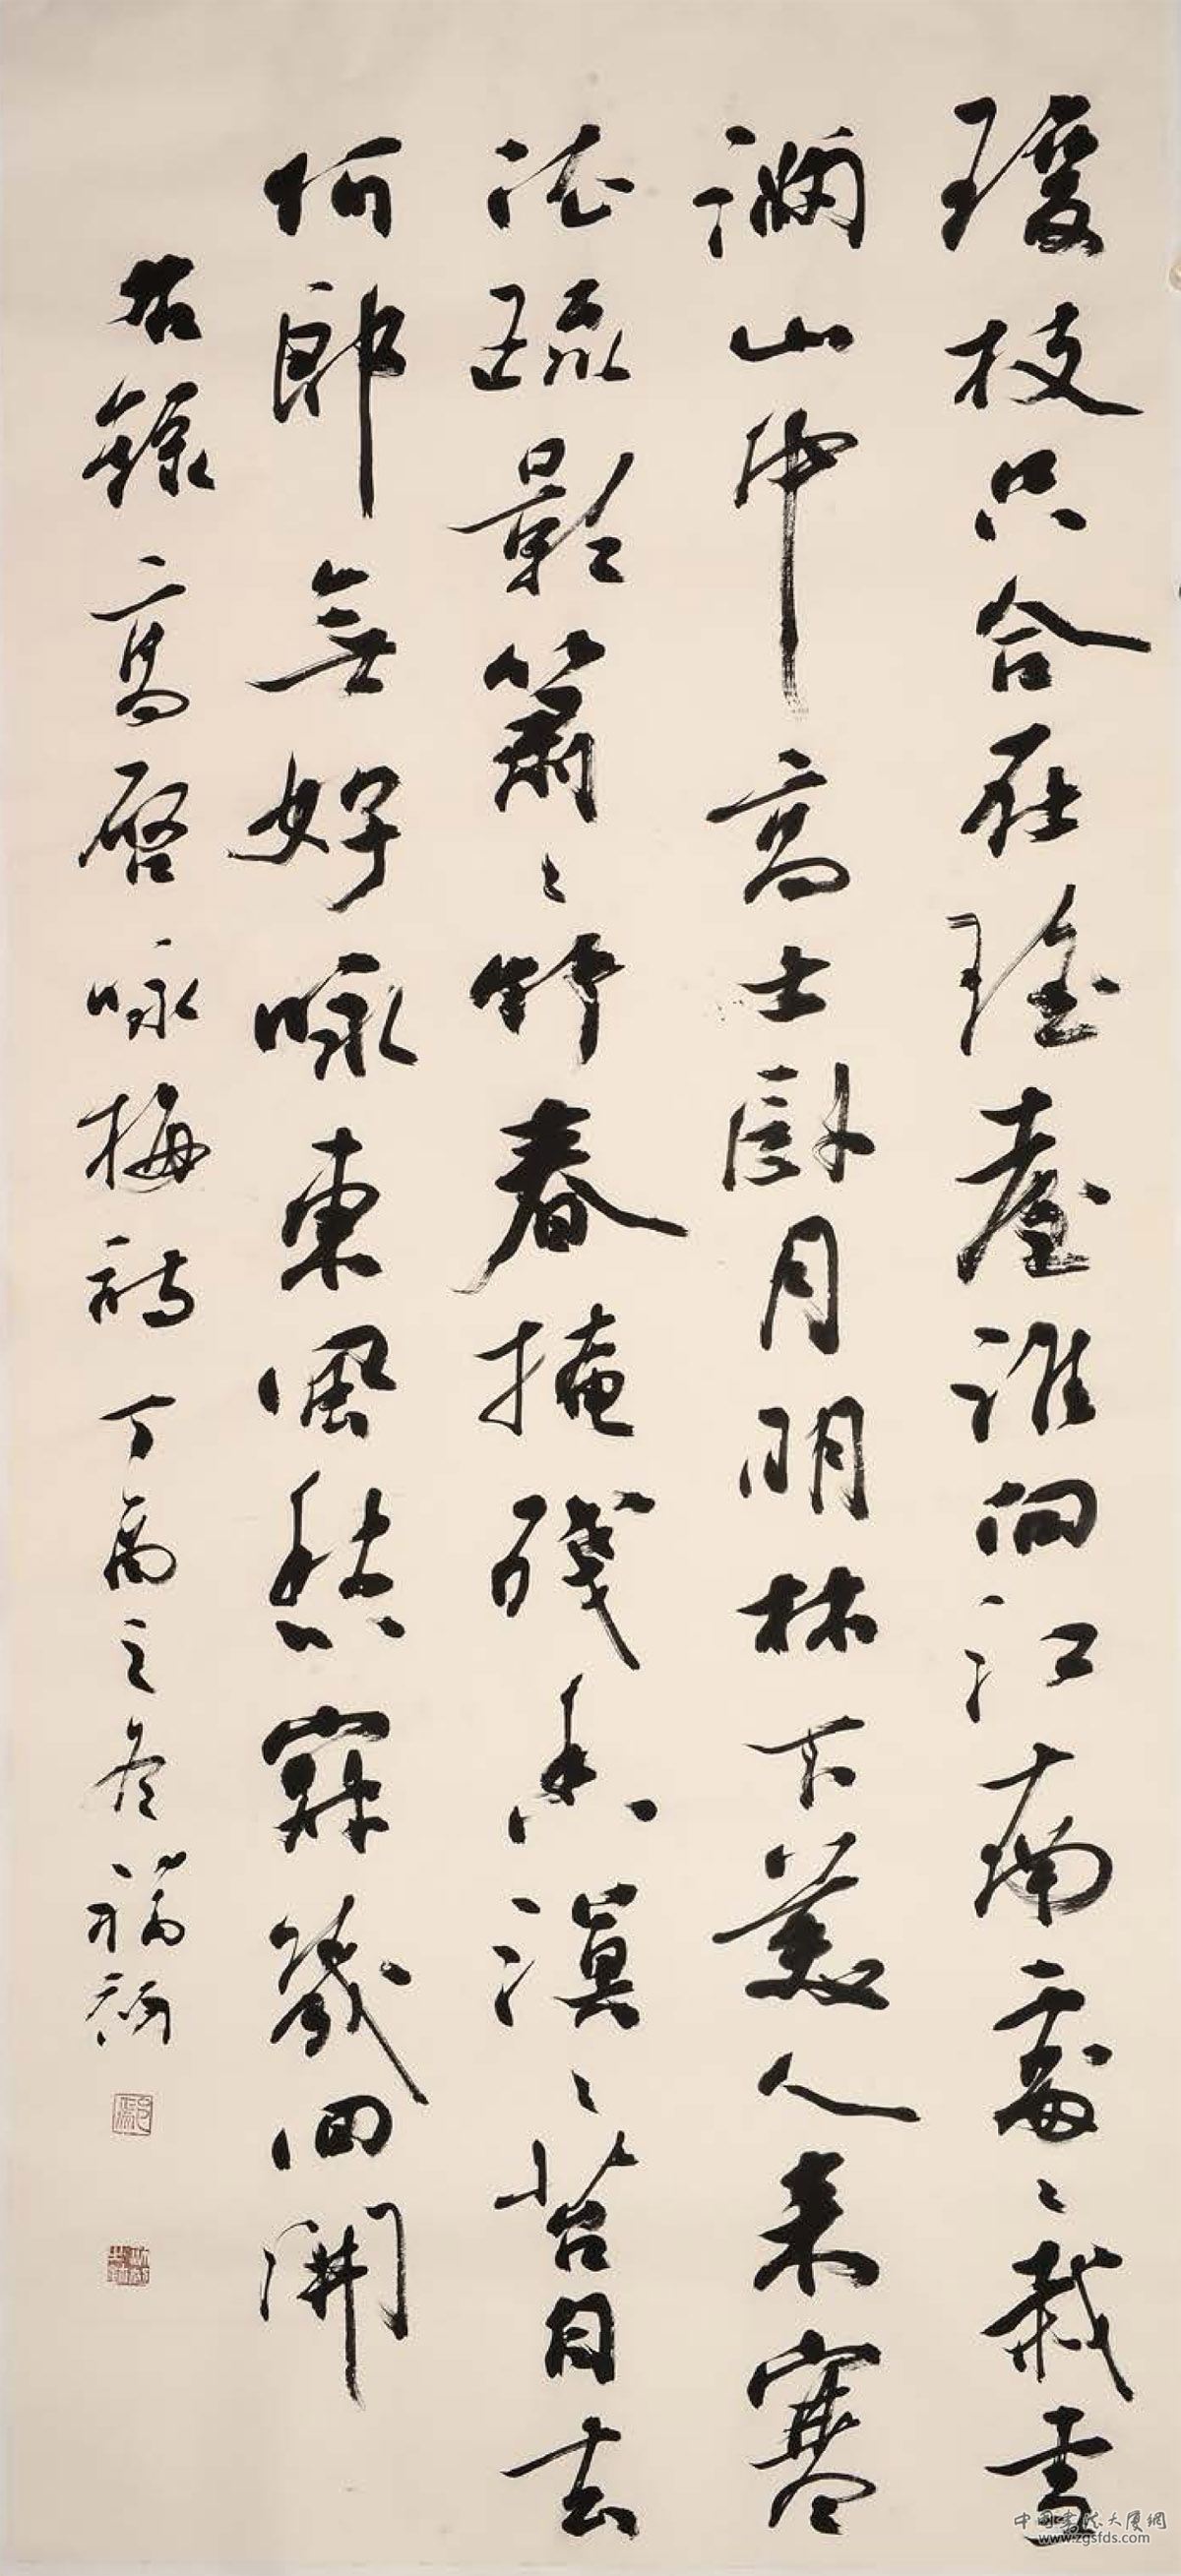 瓊枝只合在瑤臺誰向江南處〻栽雪
滿山中高士臥月明林下美人來寒
依疏影蕭〻竹春掩殘香漠〻苔自去
何郎無好咏東風愁寂幾回開
右錄高啓咏梅詩丁酉之冬
中国書法大厦網
www.zgsfds.com